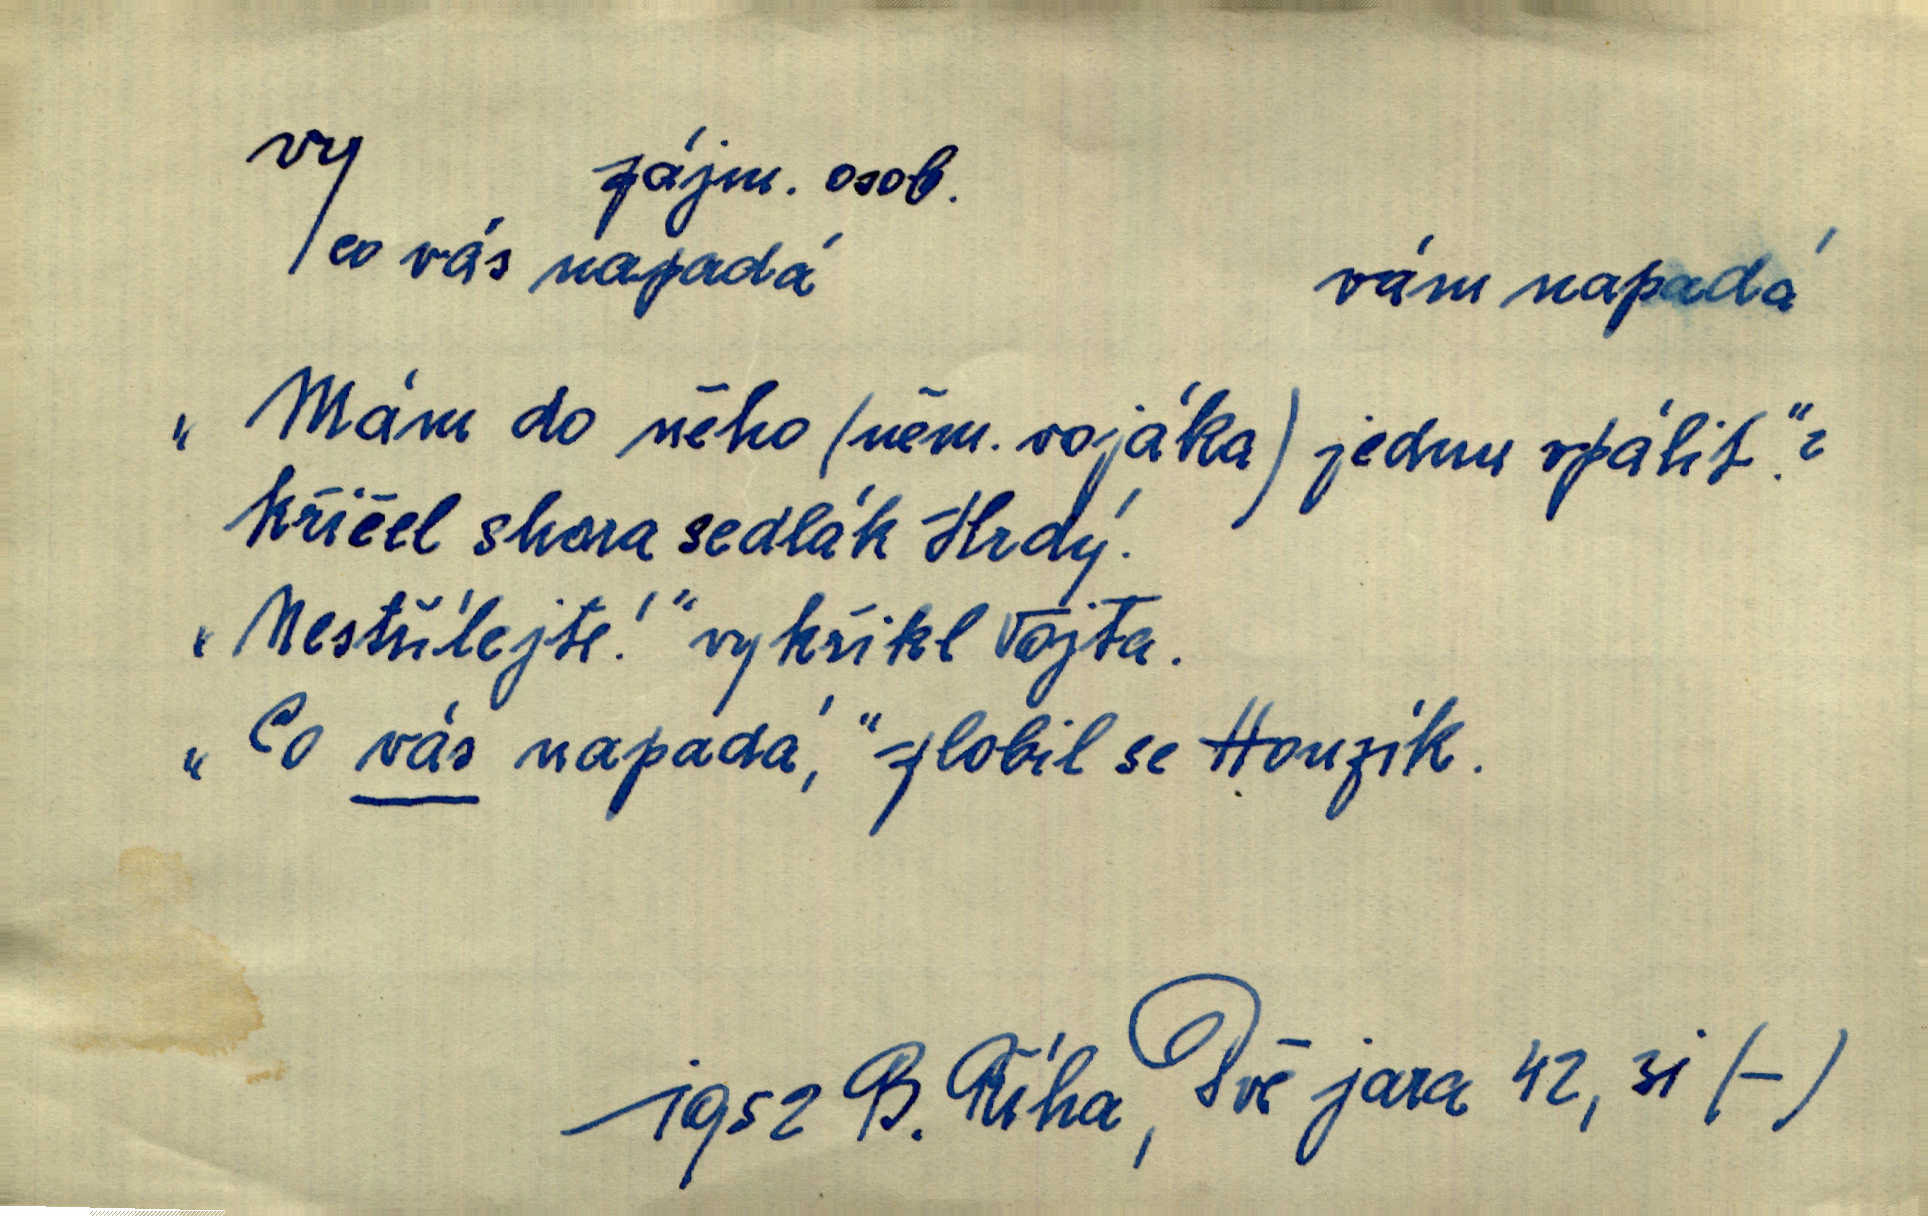 vy zájm. osob.
/co vás napadá vám napadá
„Mám do něho (něm. vojáka) jednu vpálit."?
křičel shora sedlák Hrdý.
„Nestřílejte!" vykřikl Vojta.
„Co vás napadá," zlobil se Honzík.
1952 B. Říha, Dvě jara 42, 31 (–)